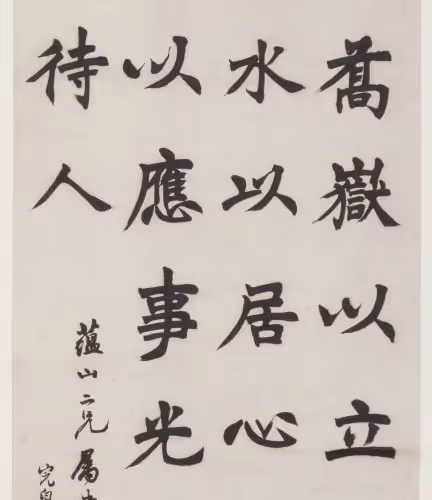 喬嶽以立
水以居心
以應事光
待人
蘊山二兄屬
完白